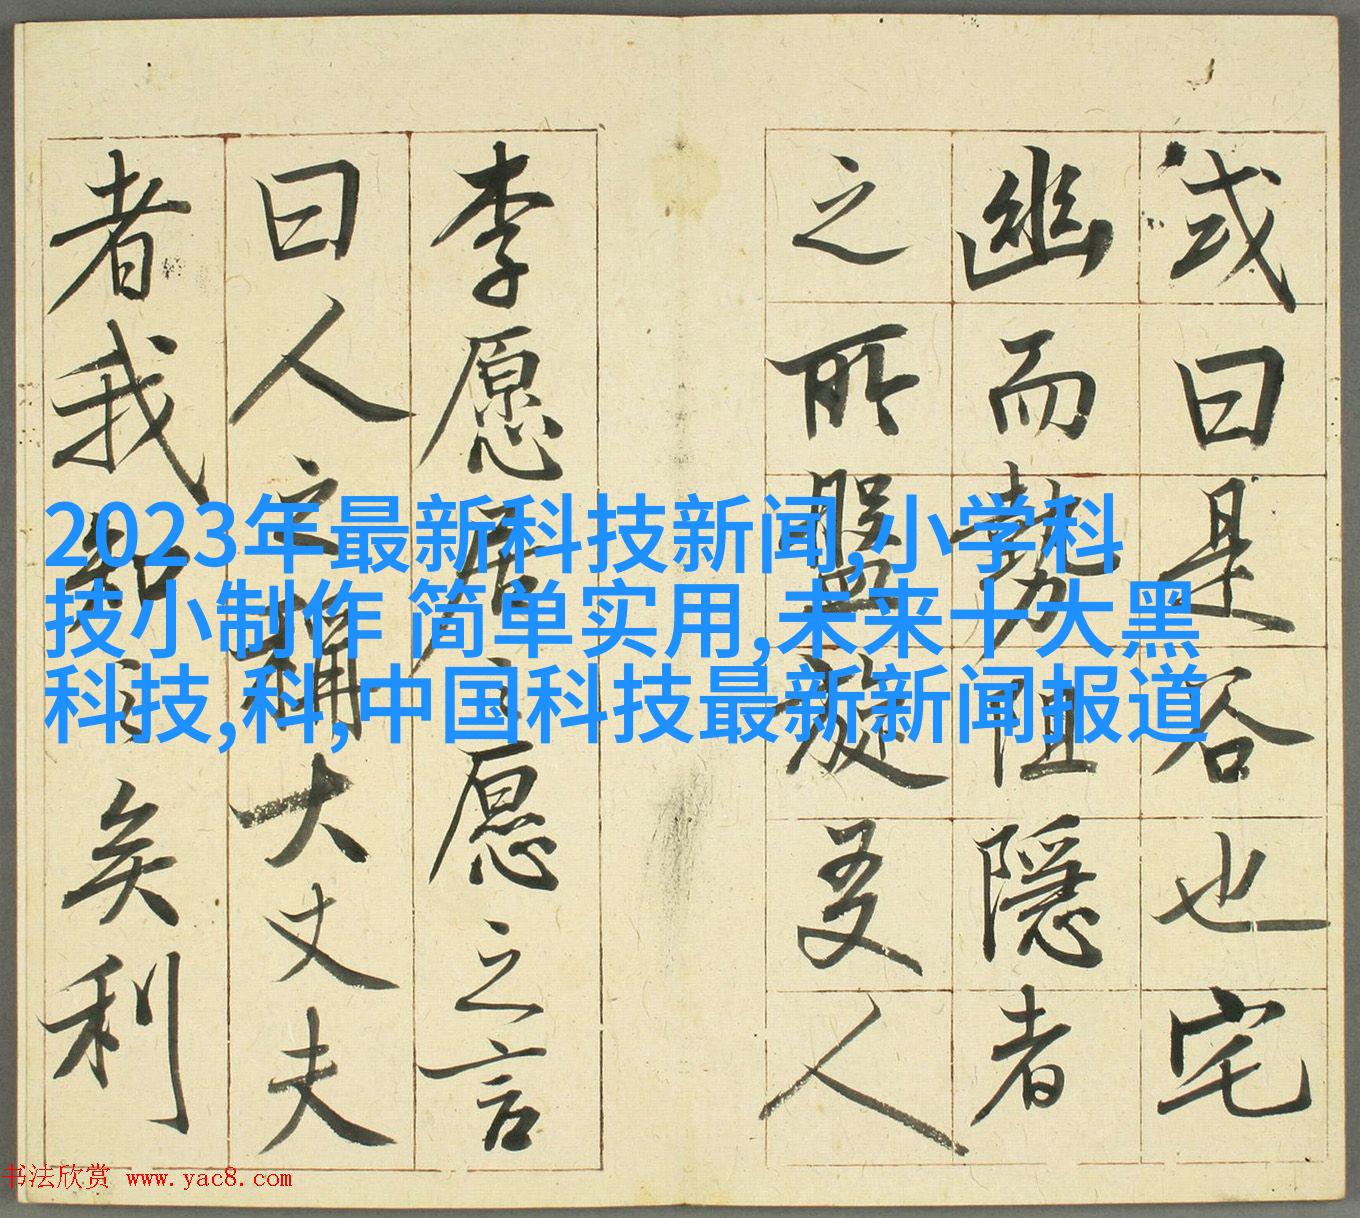 或曰是谷也宅
幽而勢阻隱者
之所盤旋友人
李愿居之愿之言
曰人之稱大丈夫
者我知之矣利
2023年最新科技新闻,小学科
技小制作 简单实用,未来十大黑
科技,科,中国科技最新新闻报道
书法欣赏 www.yac8.com